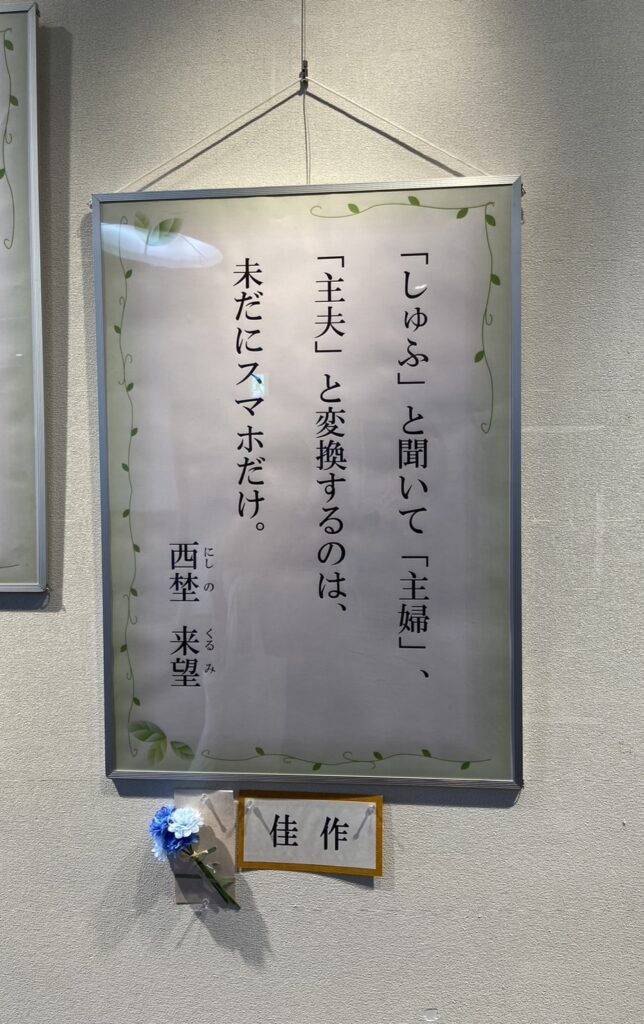 「しゅふ」と聞いて「主婦」、
「主夫」と変換するのは、
未だにスマホだけ。
西埜 来望
にし の くる み
佳作